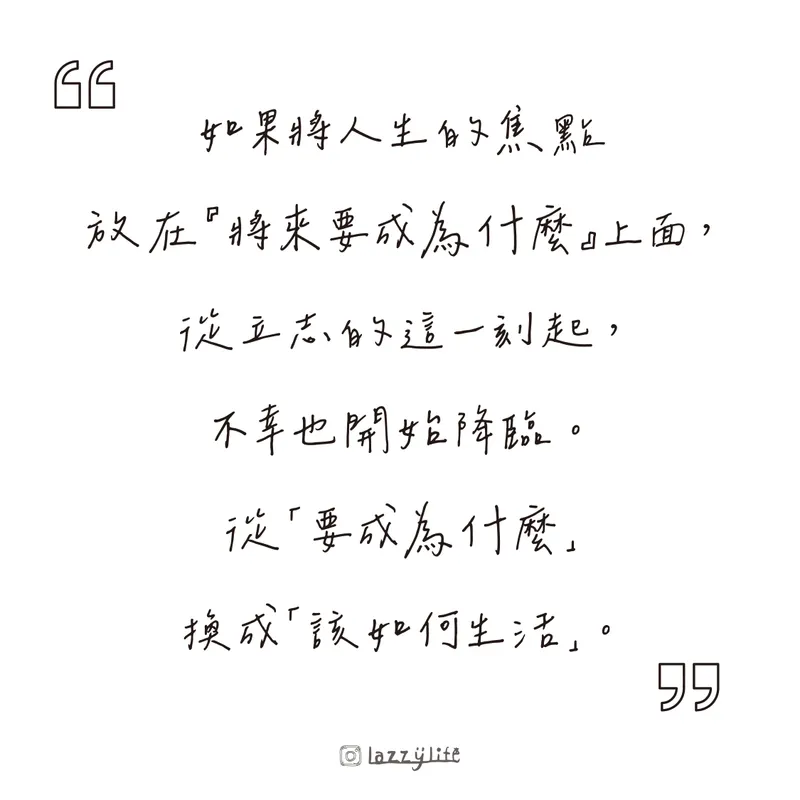 如果將人生的焦點
放在『將來要成為什麼』上面，
從立志的這一刻起，
不幸也開始降臨。
從「要成為什麼」
換成「該如何生活」。
lazzylife